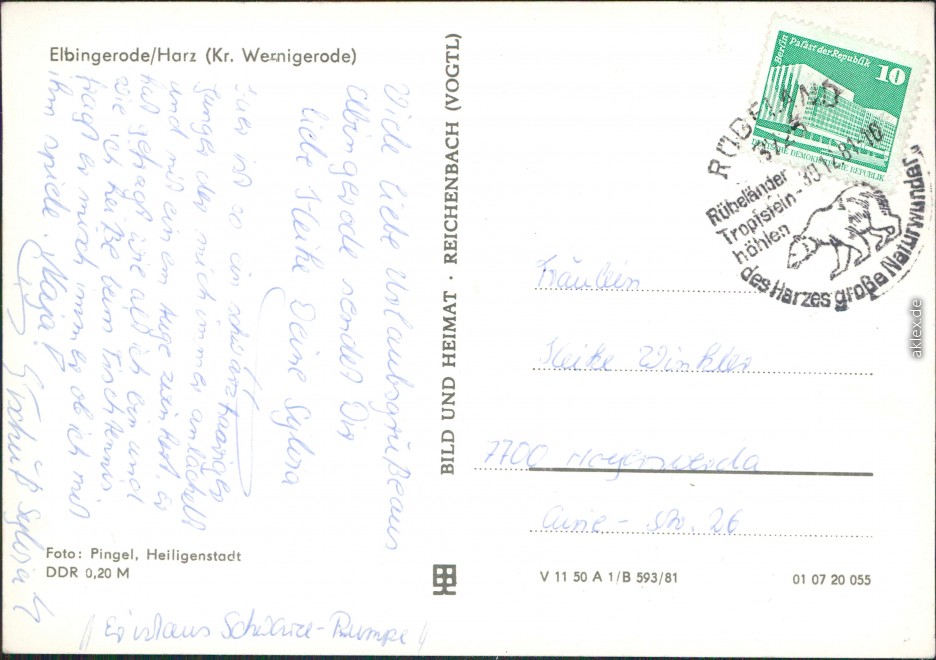 Elbingerode/Harz (Kr. Wernigerode)
Viele liebe Urlaubsgrüße aus
Elbingerode sendet Dir
liebe Heike Deine Sylvia
Hier ist so ein schwarzhaariger
Junge der mich immer anlächelt
und mit einem Auge zwinkert. Er
hat gefragt wie alt ich bin und
wie ich heiße beim Tischtennis
fragt er mich immer ob ich mit
ihm spiele.
Tschüß Sylvia
Foto: Pingel, Heiligenstadt
DDR 0,20 M
BILD UND HEIMAT · REICHENBACH (VOGTL)
Berlin Palast der Republik
10
DEUTSCHE DEMOKRATISCHE REPUBLIK
RÜBELAND
30.12.81-10
Rübeländer
Tropfstein-
höhlen
des Harzes große Naturwunder
Fräulein
Heike Winkler
7700 Hoyerswerda
Curie-Str. 26
V 11 50 A 1/B 593/81
01 07 20 055
aklex.de